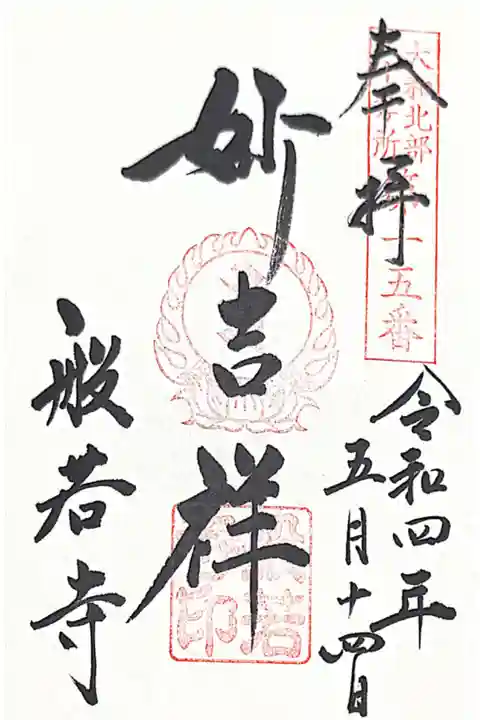 奉拝
大和北部八十八ヶ所第十五番
令和四年
五月十四日
妙吉祥
般若寺